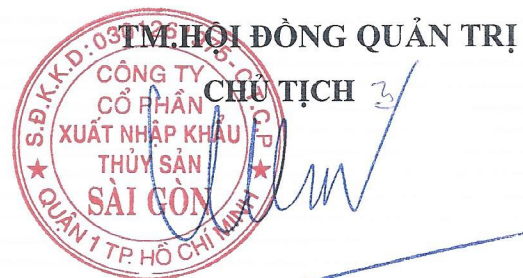 TM.HỘI ĐỒNG QUẢN TRỊ
CHỦ TỊCH
S.Đ.K.K.D:
C.T.C.P
CÔNG TY
CỔ PHẦN
XUẤT NHẬP KHẨU
THỦY SẢN
SÀI GÒN
QUẬN 1 TP. HỒ CHÍ MINH